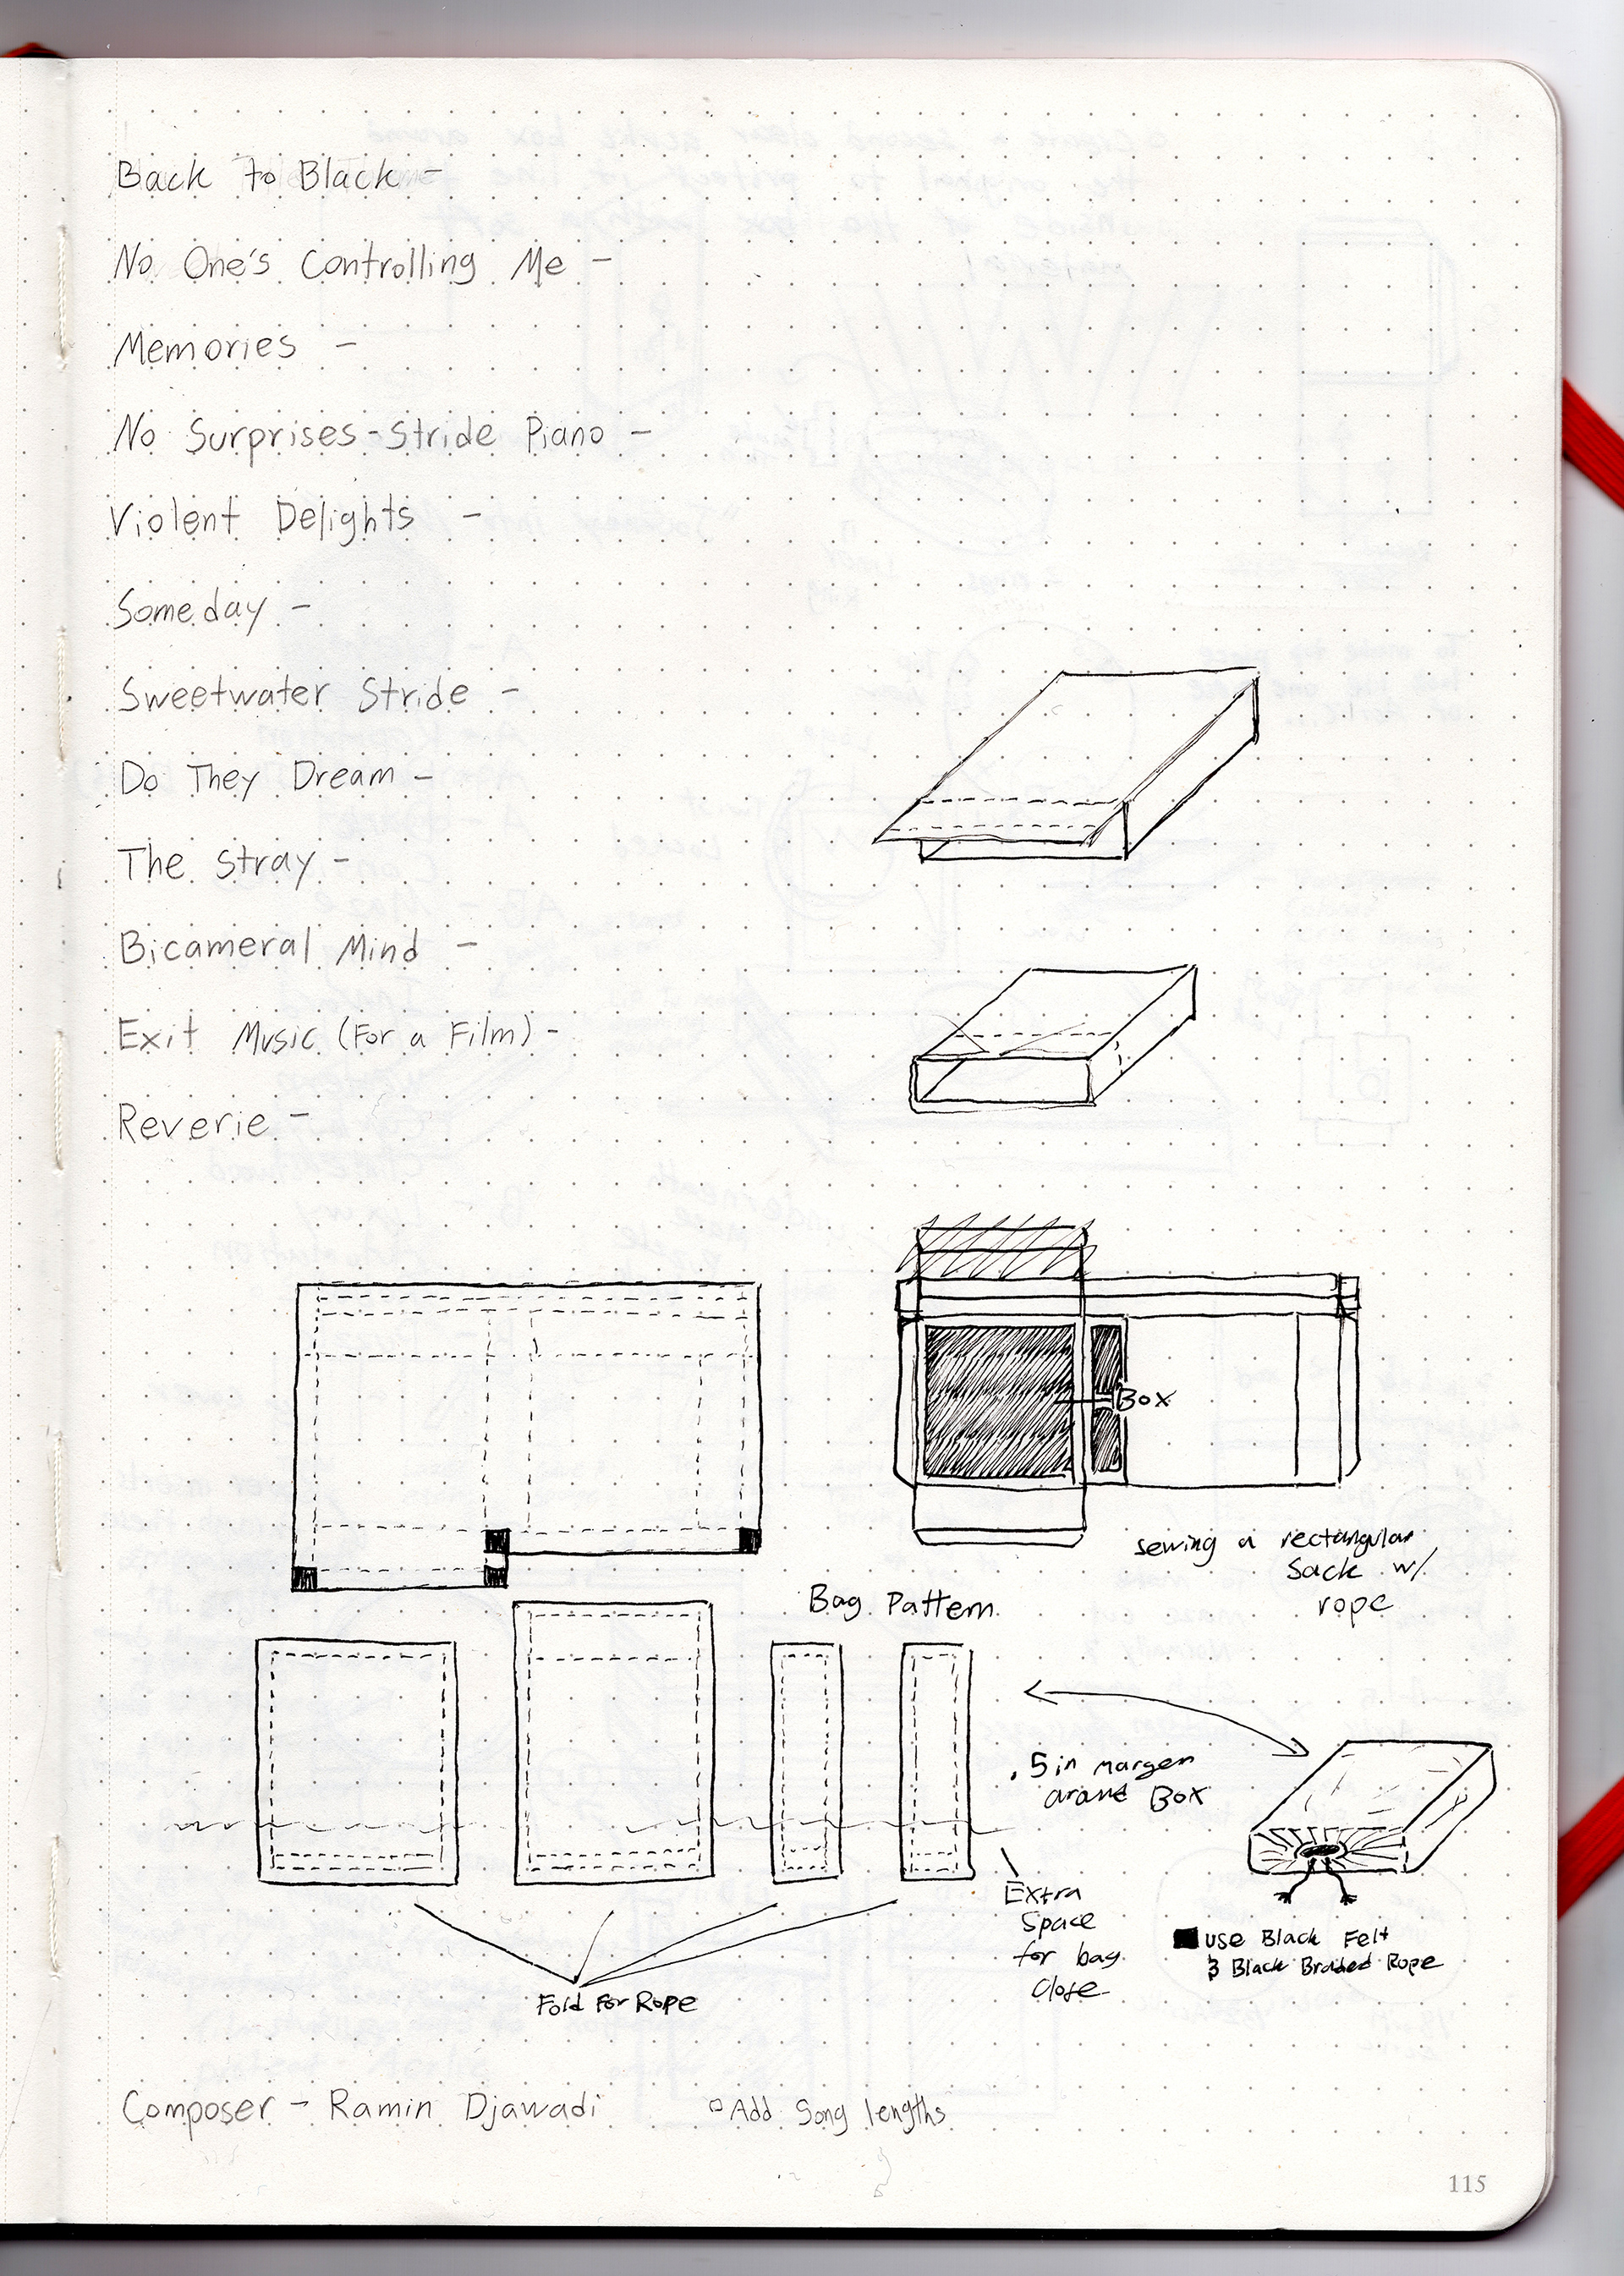 Back to Black -
No One's Controlling Me -
Memories -
No Surprises - Stride Piano -
Violent Delights -
Someday -
Sweetwater Stride -
Do They Dream -
The Stray -
Bicameral Mind -
Exit Music (For a Film) -
Reverie -
Box
sewing a rectangular
Sack w/
rope
Bag Pattern
.5 in margen
around Box
Extra
Space
for bag
Close
use Black Felt
& Black Braided Rope
Fold For Rope
Composer - Ramin Djawadi
Add Song lengths
115